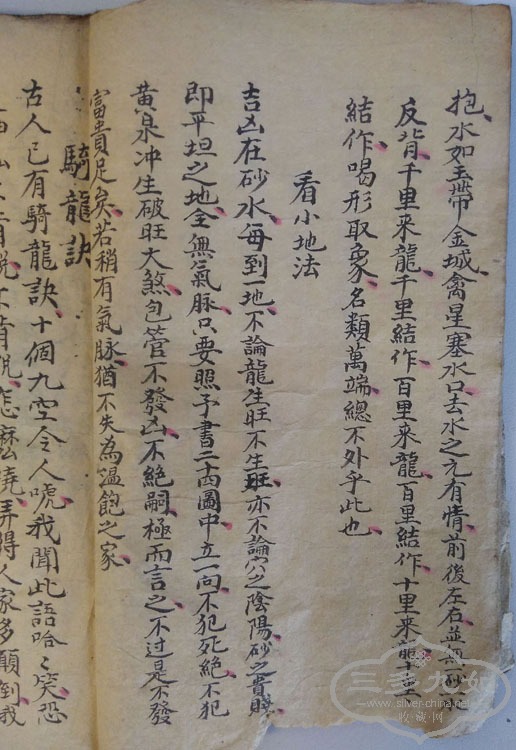 抱水如玉帶金城禽星塞水口去水之元有情前後左右並無砂水
反背千里來龍千里結作百里來龍百里結作十里來龍十里
結作喝形取象名類萬端總不外乎此也
看小地法
吉凶在砂水每到一地不論龍生旺不生旺亦不論穴之陰陽砂之貴賤
即平坦之地全無氣脉只要照予書二十四圖中立一向不犯死絕不犯
黃泉冲生破旺大煞包管不發凶不絕嗣極而言之不過是不發
富貴足矣若稍有氣脉猶不失為溫飽之家
騎龍訣
古人已有騎龍訣十個九空令人唬我聞此語哈々笑恐
怎麽撓弄得人家多顛倒我
三羊九如
www.silver-china.net
收藏网